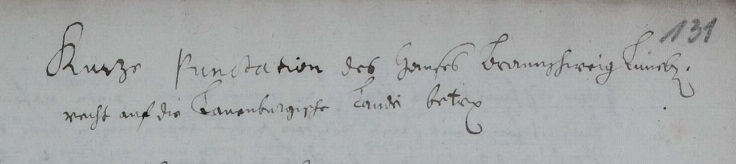 131
Kurze Punctation des Hauses Braunschweig Lüneb.
recht auf die Lauenburgische Lande betr